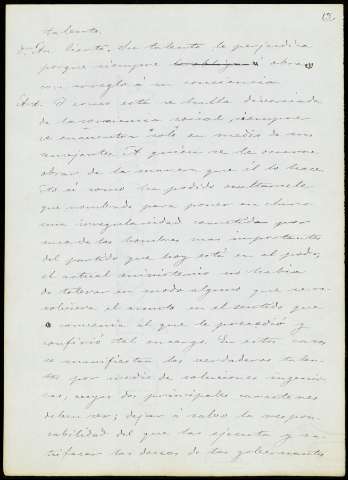 12
talento.
D. An. Cierto. Su talento le perjudica
porque siempre le obliga á obrar
con arreglo á su conciencia
A.A. Y como está se halla divorciada
de la conciencia social, siempre
se encuentra "solo" en medio de sus
semejantes. A quien se le ocurre
obrar de la manera que él lo hace
Esto si como ha podido ocultarsele
que nombrado para poner en claro
una irregularidad cometida por
uno de los hombres mas importantes
del partido que hoy está en el poder,
el actual ministerio no habia
de tolerar en modo alguno que se re-
solviera el asunto en el sentido que
convenia al que le precedió y
confirió tal encargo. En estos casos
se manifiestan los verdaderos talen-
tos por medio de soluciones ingenio-
sas, cuyos dos principales caracteres
deben ser; dejar á salvo la respon-
sabilidad del que las ejecuta y sa-
tisfacer los deseos de los gobernantes